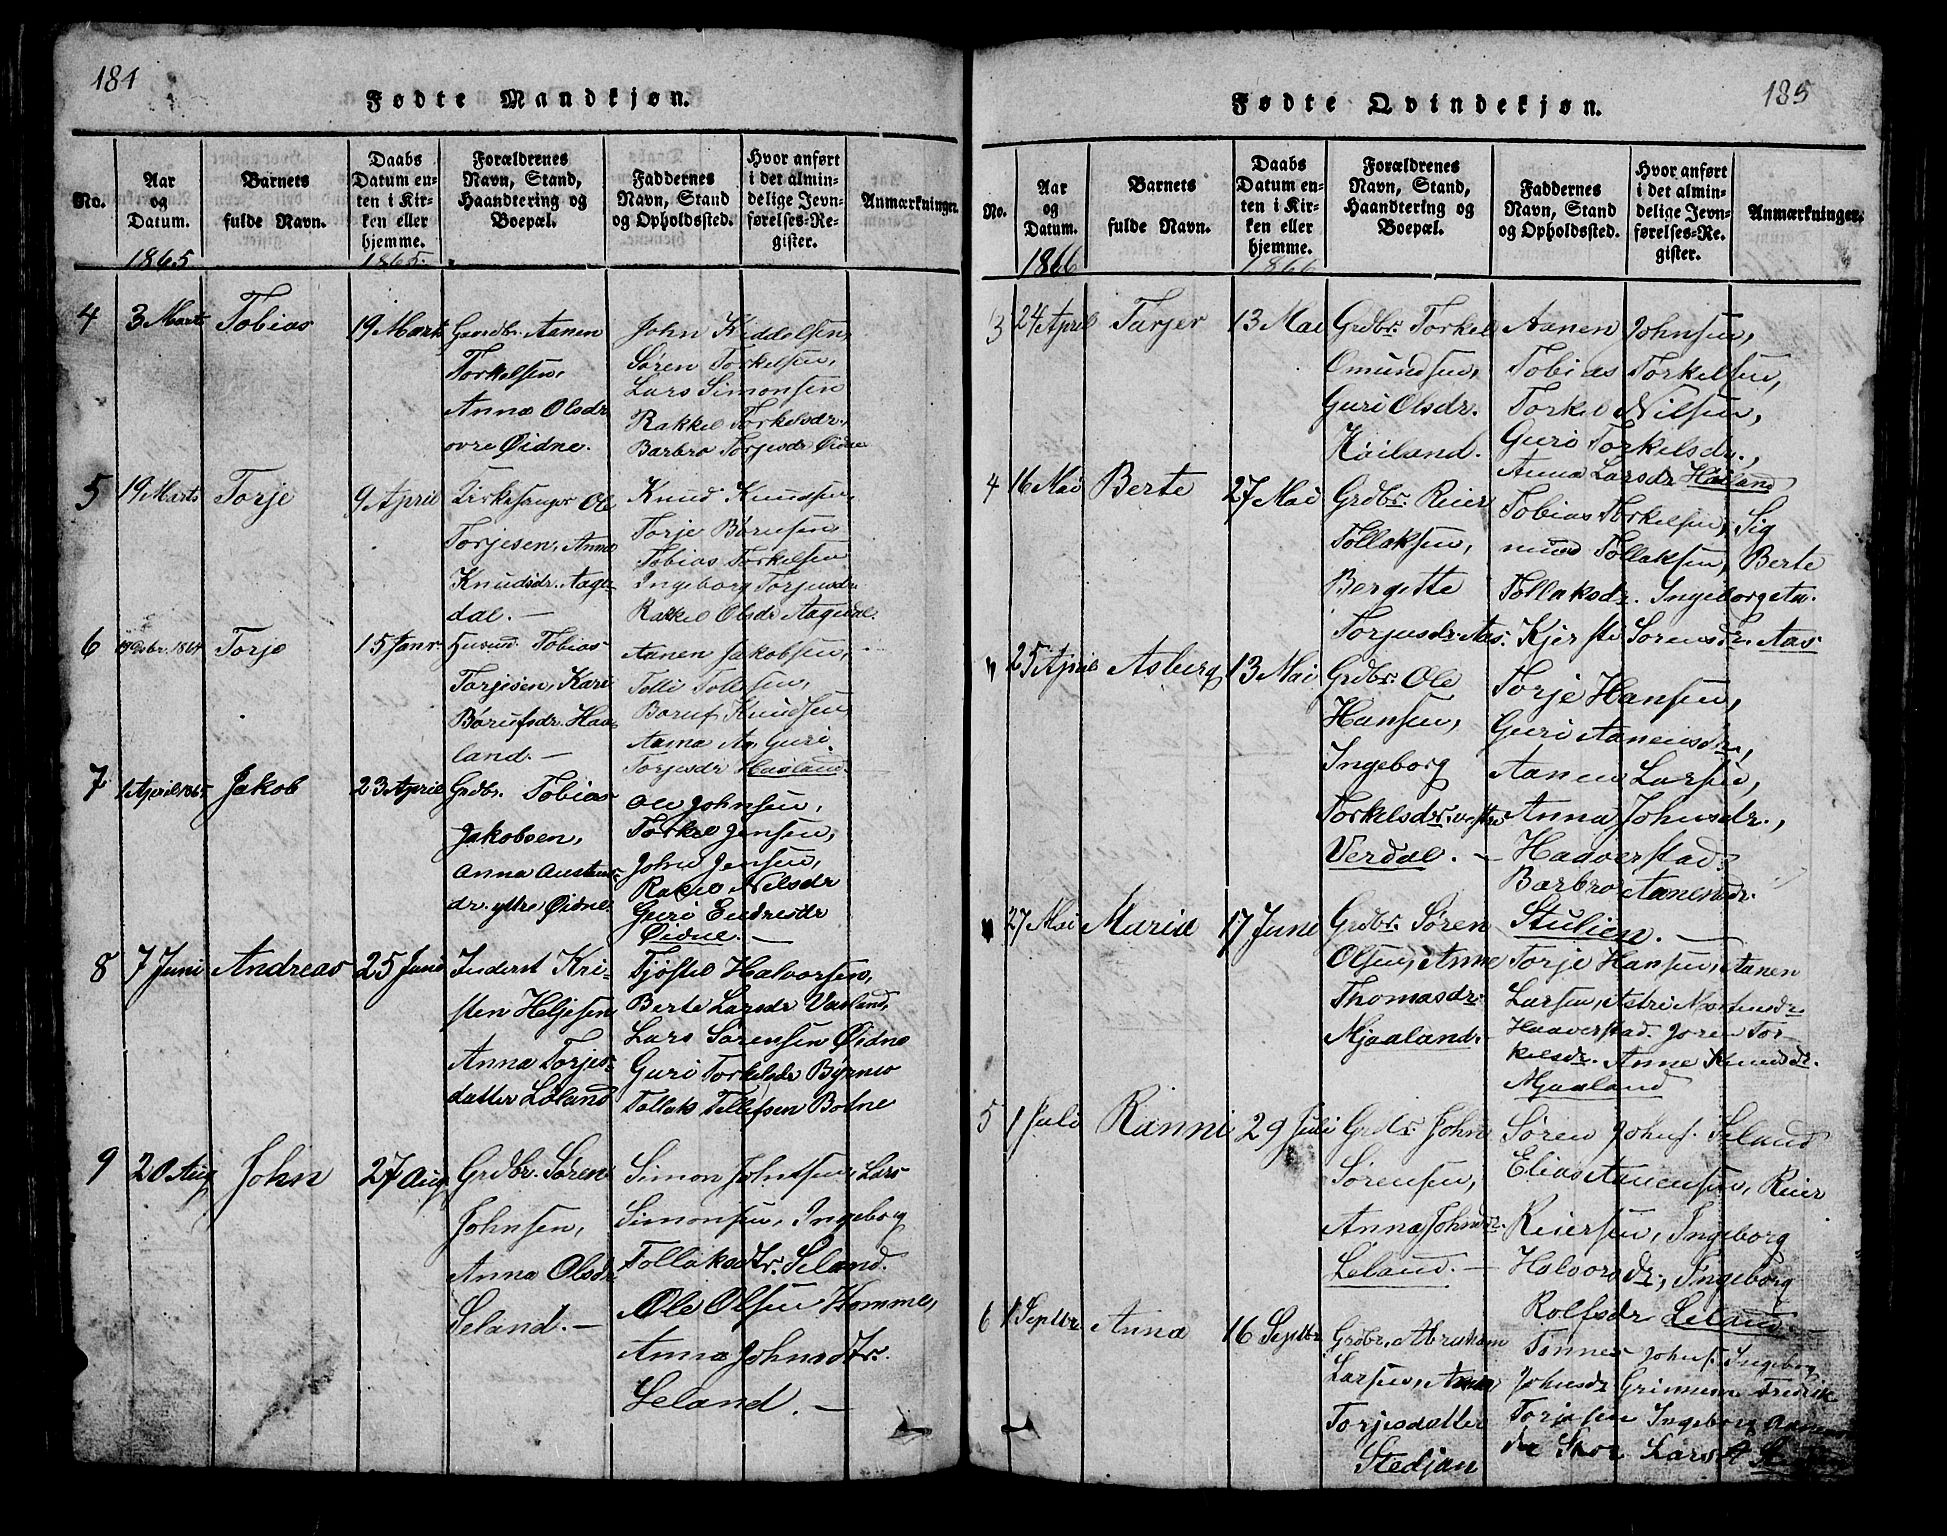 184
Fødte Mandkjøn.
No.
Aar
og
Datum.
1865
Barnets
fulde Navn.
Daabs
Datum en-
ten i Kir-
ken eller
hjemme.
1865.
Forældrenes
Navn, Stand,
Haandtering og
Boepæl.
Faddernes
Navn, Stand
og Opholdssted.
Hvor anført
i det almin-
delige Jevn-
førelses-Re-
gister.
Anmærkninger.
4
3 Marts
Tobias
19 Marts
Gaardbr. Aanen
Torkelsen,
Anna Olsdr
øvre Øidne.
John Kiddelsen,
Søren Torkelsen,
Lars Simonsen
Rakkel Torkelsdr.,
Barbro Torjusdr Øidne
5
19 Marts
Torje
9 April
Kirkesanger Ole
Torjesen, Anna
Knudsdr. Aage-
dal. —
Knud Knudsen,
Torje
Tobias Torkelsen
Ingeborg Torjusdr
Rakkel Olsdr Aagedal.
6
Torje
15 Janr.
Husmd. Tobias
Torjesen, Kari
Børufsdr. Haa-
land. —
Aanen Jakobsen,
Tolli Tollefsen,
Boruf Knudsen,
Guri
Torjesdr Haaland.
7
1 April 1865
Jakob
23 April
Grdbr. Tobias
Jakobsen,
Anna Austens-
dr. ytre Øidne.
Ole Johnsen,
Torkel Jensen,
John Jensen,
Rakel Nilsdr
Guri Endresdr
Øidne. —
8
7 Juni
Andreas
25 Juni
Inderst Kri-
sten Heljesen,
Anna Torjes-
datter Løland
Tjøstel Halvorsen,
Berte Larsdr Vasland,
Lars Sørensen Øidne
Guri Torkelsdr Byrnes
Tollak Tellefsen Bodne
9
20 Aug
John
27 Aug
Grdbr. Søren
Johnsen,
Anna Olsdr
Seland. —
Simon Johnsen, Lars
Simonsen, Ingeborg
Tollaksdtr. Seland.
Ole Olsen Homme,
Anna Johnsdtr.
Seland. —
185
Fødte Qvindekjøn.
No.
Aar
og
Datum.
1866
Barnets
fulde Navn.
Daabs
Datum en-
ten i Kir-
ken eller
hjemme.
1866
Forældrenes
Navn, Stand,
Haandtering og
Boepæl.
Faddernes
Navn, Stand
og Opholdssted.
Hvor anført
i det almin-
delige Jevn-
førelses-Re-
gister.
Anmærkninger.
3
24 April
Tarjer
13 Mai
Grdbr. Torkel
Omundsen,
Guri Olsdr.
Høiland.
Aanen Johnsen,
Tobias Torkelsen,
Torkel Nilsen,
Guri Torkelsdr.,
Anna Larsdr Høiland
4
16 Mai
Berte
27 Mai
Grdbr. Reier
Tollaksen,
Bergitte
Torjusdr. Aas.
Tobias Torkelsen, Sig
mund Tollaksen, Berte
Tollaksdr. Ingeborg
Kjersti Sørensdr. Aas
"
25 April
Asberg
13 Mai
Grdbr. Ole
Hansen,
Ingeborg
Torkelsdr. vestre
Verdal. —
Torje Hansen,
Guri Aanensdr.,
Aanen Larsen,
Anna Johnsdr.,
Haaverstad.
Barbro Aanensdr.
Stulien. —
"
27 Mai
Marie
17 Juni
Grdbr. Søren
Olsen, Anne
Thomasdr.
Mjaaland.
Torje Hansen, Aanen
Larsen, Astri Mortensdr.
Haaverstad. Joren Tor-
kelsdr. Anne Knudsdr.
Mjaaland
5
1 Juli
Ranni
29 Juli
Grdr. John
Sørensen,
Anna Johnsdr.
Leland. —
Søren Johns. Seland
Elias Aanensen, Reier
Reiersen, Ingeborg
Halvorsdr., Ingeborg
Rolfsdr Leland. —
6
1 Septbr
Anna
16 Septbr
Grdbr. Abraham
Larsen, Anna
Torjesdatter
Stedjan
Tønnes Johns. Ingeborg
Johnsdr Grimnum Fredrik
Torjesen Ingeborg
Lars